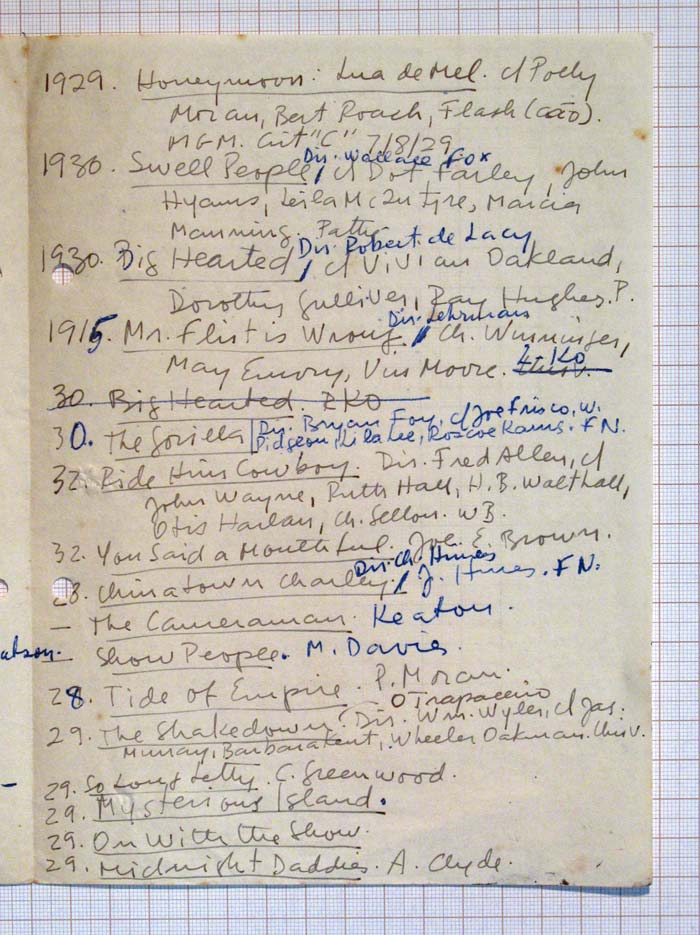 1929. Honeymoon: Lua de Mel. c/ Polly
Moran, Bert Roach, Flash (cão).
MGM. Cit "C" 7/8/29
Dir. Wallace Fox
1930. Swell People, c/ Dot Farley, John
Hyams, Leila McIntyre, Marcia
Manning. Pathé
Dir. Robert de Lacy
1930. Big Hearted, c/ Vivian Oakland,
Dorothy Gulliver, Ray Hughes. P.
Dir. Lehrman
1915. Mr. Flirt is Wrong, Ch. Winninger,
May Emory, Vin Moore. Univ. L-KO
30. Big Hearted. RKO
30. The Gorilla / Dir. Bryan Foy, c/ Joe Frisco, W.
Pidgeon, Lila Lee, Roscoe Karns. F.N.
32. Ride Him Cowboy. Dir. Fred Allen, c/
John Wayne, Ruth Hall, H. B. Walthall,
Otis Harlan, Ch. Sellon. WB.
32. You Said a Mouthful. Joe E. Brown.
Dir. Ch. Hines
28. Chinatown Charley, J. Hines. F.N.
— The Cameraman. Keaton.
— Show People. M. Davies.
28. Tide of Empire. P. Moran.
O Trapaceiro
29. The Shakedown. Dir. Wm. Wyler, c/ Jas.
Murray, Barbara Kent, Wheeler Oakman. Univ.
29. So Long Letty. C. Greenwood.
29. Mysterious Island.
29. On With the Show.
29. Midnight Daddies. A. Clyde.